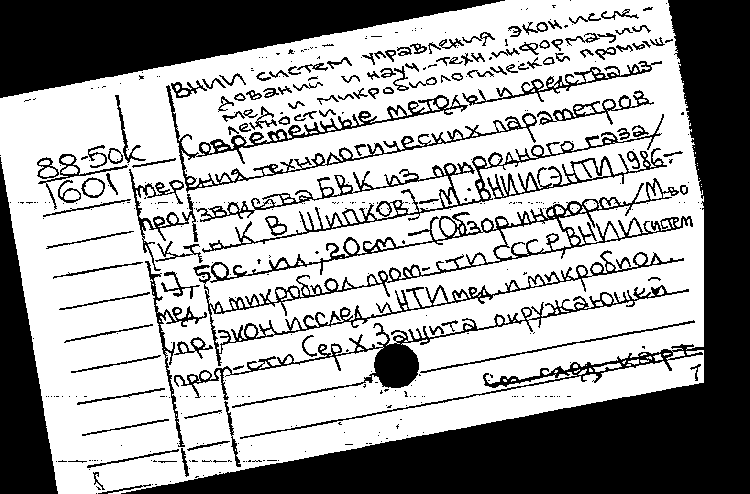 ВНИИ систем управления, экон. иссле-
дований и науч.-техн. информации
мед. и микробиологической промыш-
ленности.
88-50К
1601
Современные методы и средства из-
мерения технологических параметров
производства БВК из природного газа /
[К.т.н. К.В. Шипков]. - М.: ВНИИСЭНТИ, 1986.-
[1], 50 с.: ил.; 20 см. - (Обзор. информ. / М-во
мед. и микробиол. пром-сти СССР, ВНИИ систем
упр., экон. исслед. и НТИ мед. и микробиол.
пром-сти Сер. X. Защита окружающей
См. след. карт.